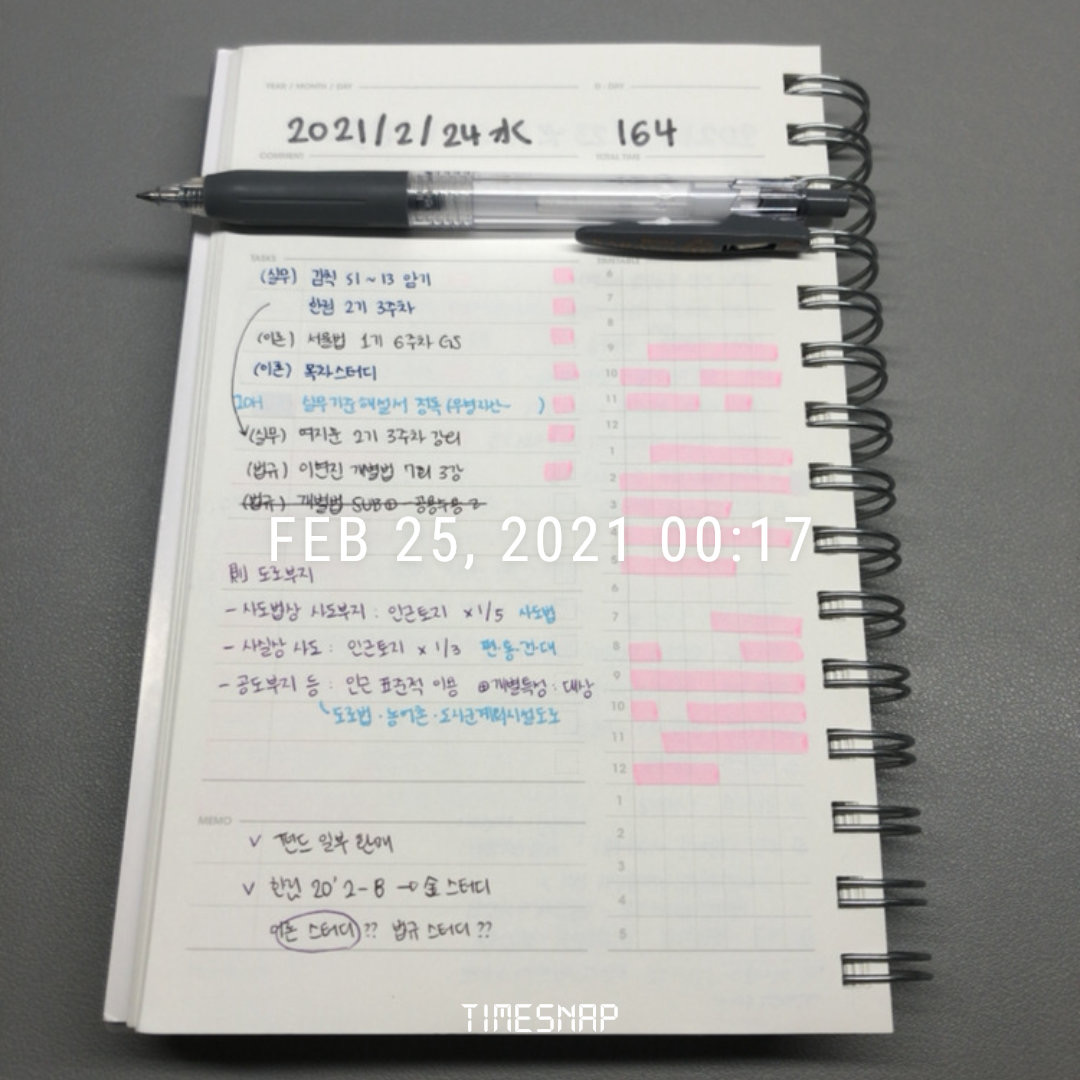 YEAR / MONTH / DAY
D-DAY
2021/2/24 水
164
COMMENT
TOTAL TIME
TASKS
TIMETABLE
(실무) 감칙 §1 ~ 13 암기
한권 2기 3주차
(이론) 서율법 1기 6주차 GS
(이론) 목차스터디
실무기준해설서 정독 (무형자산~ )
(실무) 여지훈 2기 3주차 강의
(법규) 이현진 개별법 7회 3강
(법규) 개별법 SUB① 공용수용 2
FEB 25, 2021 00:17
則 도로부지
- 사도법상 사도부지 : 인근토지 × 1/5 사도법
- 사실상 사도 : 인근토지 × 1/3 편·동·간·대
- 공도부지 등 : 인근 표준적 이용 ⊕개별특성 : 대상
도로법·농어촌·도시군계획시설도로
6
7
8
9
10
11
12
1
2
3
4
5
6
7
8
9
10
11
12
1
2
3
4
5
MEMO
∨ 펀드 일부 환매
∨ 한권 20' 2-B → 金 스터디
이론 스터디 ?? 법규 스터디 ??
TIMESNAP